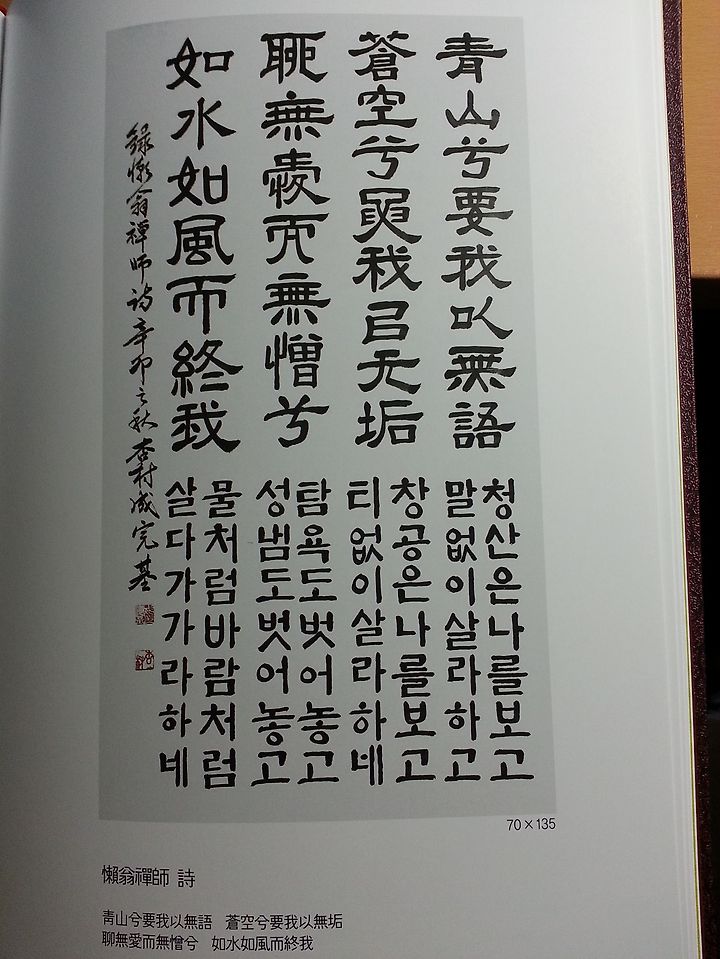 青山兮要我以無語
蒼空兮要我㠯无垢
聊無愛而無憎兮
如水如風而終我
청산은나를보고
말없이살라하고
창공은나를보고
티없이살라하네
탐욕도벗어놓고
성냄도벗어놓고
물처럼바람처럼
살다가가라하네
錄懶翁禪師詩辛卯之秋 杏村成完基
70×135
懶翁禪師 詩
靑山兮要我以無語 蒼空兮要我以無垢
聊無愛而無憎兮 如水如風而終我